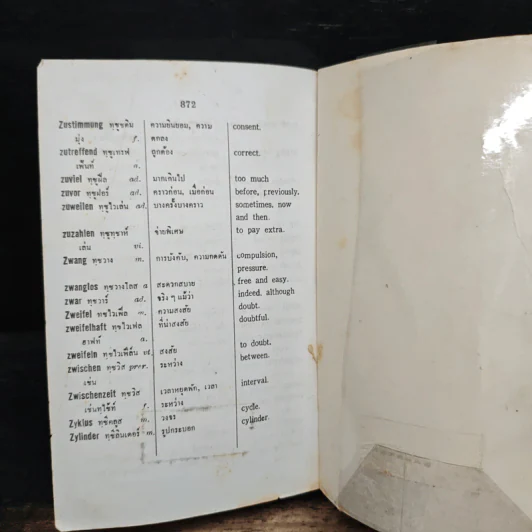 872
Zustimmung ทซูชติม ความยินยอม, ความ consent.
มุ่ง f. ตกลง
zutreffend ทซูเทรฟ ถูกต้อง correct.
เฟ็นท์ a.
zuviel ทซูฟีล ad. มากเกินไป too much
zuvor ทซูฟอร์ ad. คราวก่อน, เมื่อก่อน before, previously.
zuweilen ทซูไวเล่น ad. บางครั้งบางคราว sometimes, now
and then.
zuzahlen ทซูทซาห์ จ่ายพิเศษ to pay extra.
เล่น vi.
Zwang ทซวาง m. การบังคับ, ความกดดัน compulsion,
pressure.
zwanglos ทซวางโลส a สะดวกสบาย free and easy.
zwar ทซวาร์ ad. จริง ๆ แม้ว่า indeed, although
Zweifel ทซไวเฟ็ล m. ความสงสัย doubt.
zweifelhaft ทซไวเฟล ที่น่าสงสัย doubtful.
ฮาฟท์ a.
zweifeln ทซไวเฟ็ล์น vi. สงสัย to doubt.
zwischen ทซวิส prov. ระหว่าง between.
เช่น
Zwischenzeit ทซวิส เวลาหยุดพัก, เวลา interval.
เช่นทไซ้ท์ f. ระหว่าง
Zyklus ทซิคลุส m. วงจร cycle.
Zylinder ทซิลินเดอร์ m. รูปกระบอก cylinder.